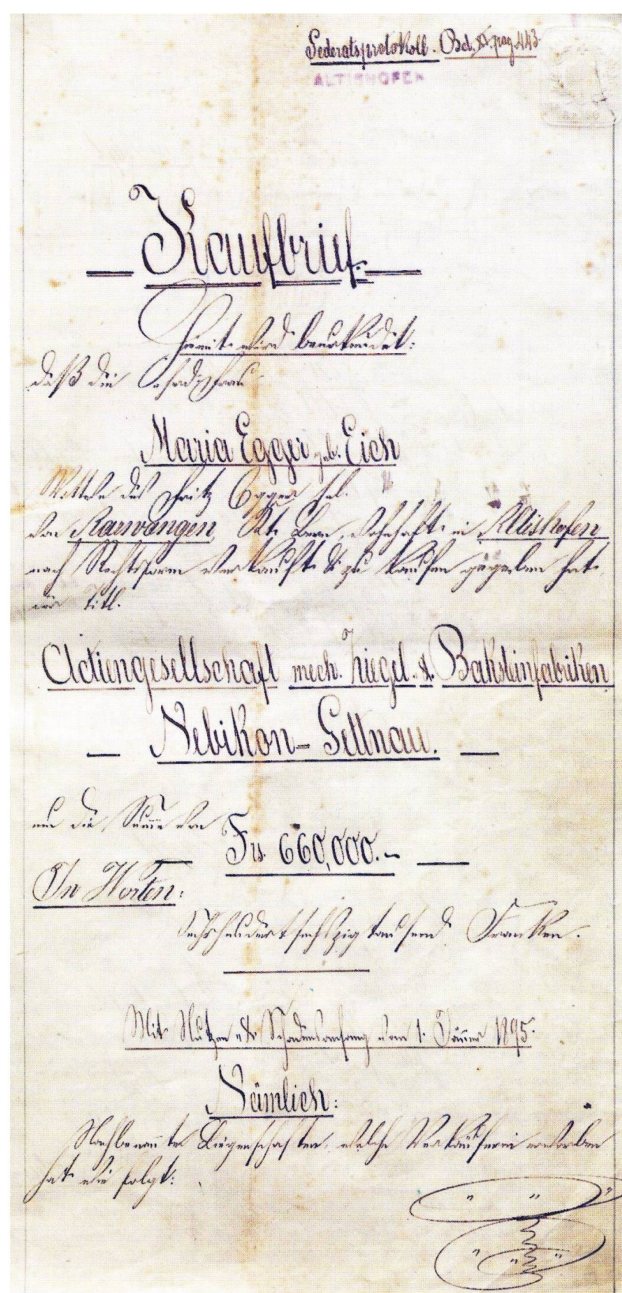 Federatsprotokoll. Bd. XV. pag. 443
ALTISHOFEN
Kaufbrief.
Hiemit wird beurkundet:
daß die Ehrds. Frau
Maria Egger geb. Eich
Wittwe des Fritz Egger sel.
von Aarwangen, Kt. Bern, wohnhaft in Altishofen
nach Rechtsform verkauft & zu kaufen gegeben hat
der Titl.
Actiengesellschaft mech. Ziegel- & Baksteinfabriken
Nebikon-Gettnau.
um die Summe von
Frs. 660,000.-
In Worten:
Sechshundertsechszig tausend Franken.
Mit Nutzen & Schadensanfang vom 1. Jänner 1895.
Nämlich:
Nachbenannte Liegenschaften, welche Verkäuferin erworben
hat wie folgt: